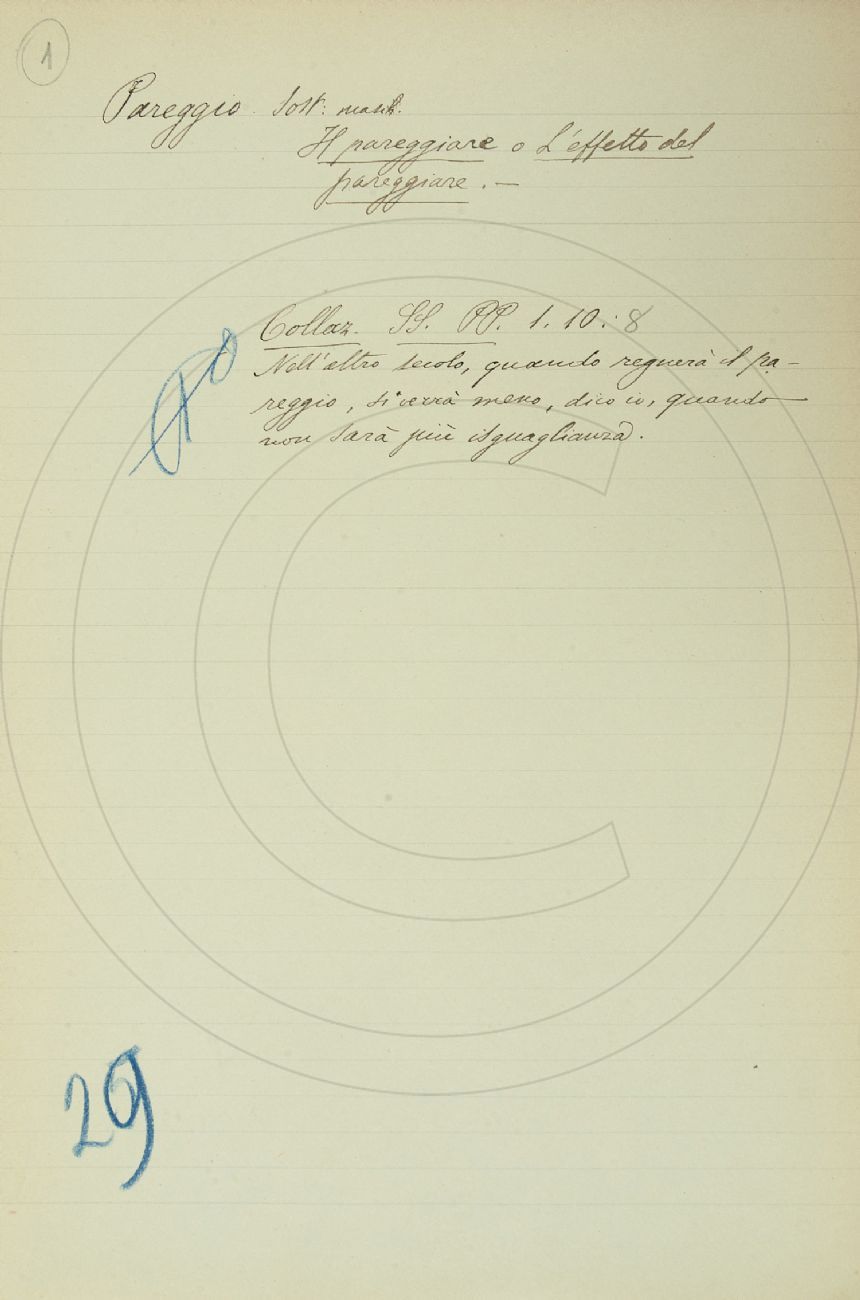 1
Pareggio. Sost: masch.
Il pareggiare o L'effetto del
pareggiare. —
Collaz. SS. PP. 1. 10: 8
Nell'altro secolo, quando regnerà il pa-
reggio, si verrà meno, dico io, quando
non sarà più isguaglianza.
29